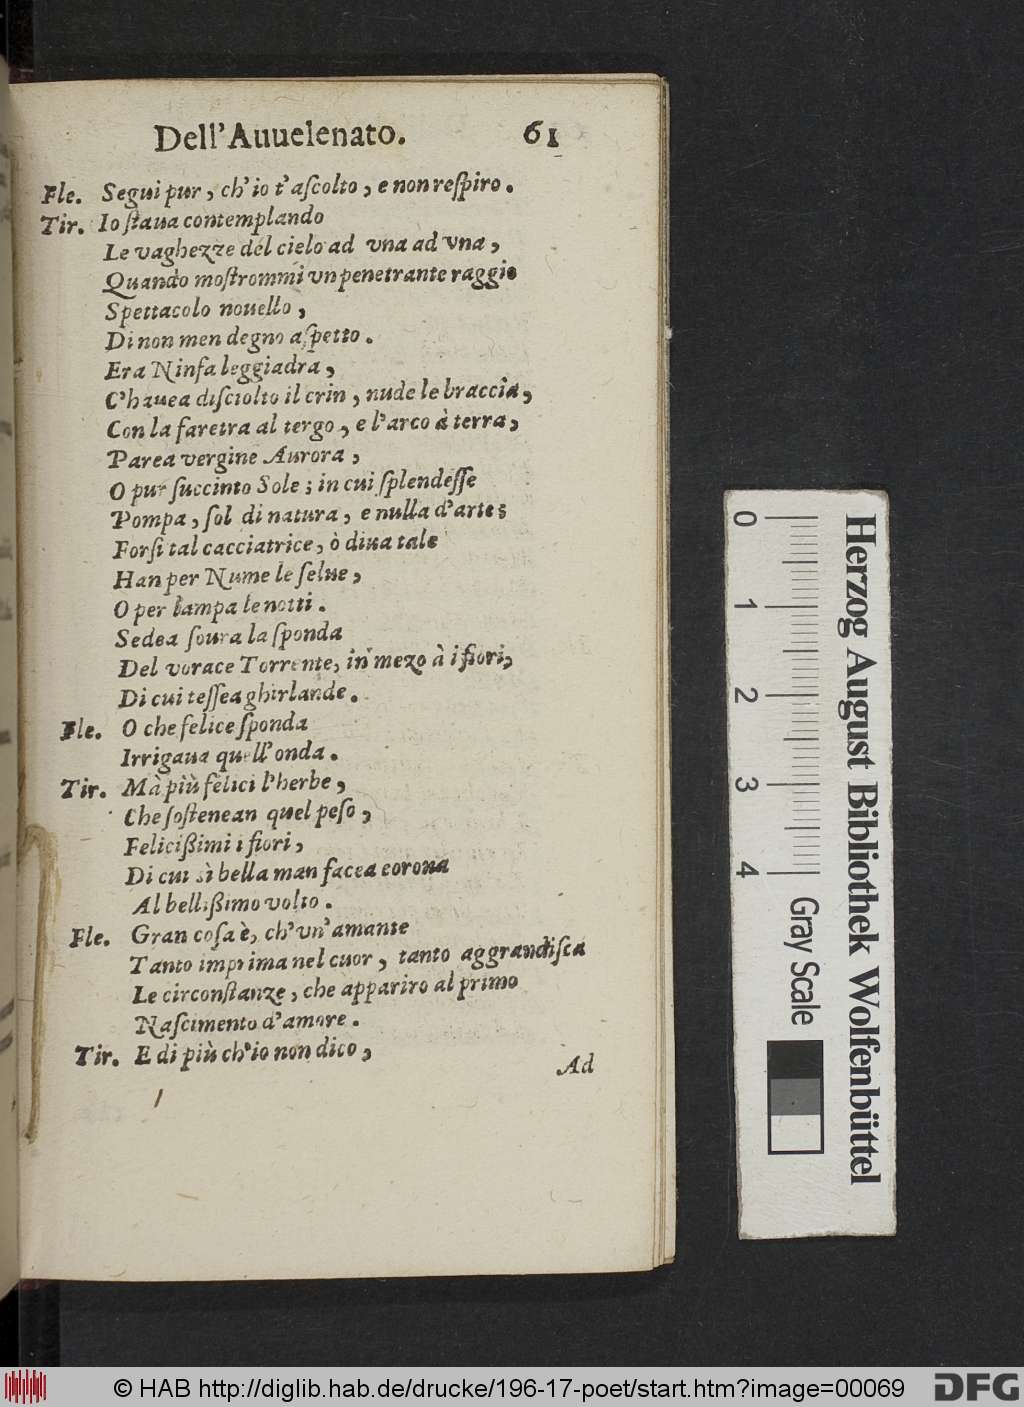 Dell'Auuelenato. 61
Fle. Segui pur, ch'io t'aſcolto, e non reſpiro.
Tir. Io ſtaua contemplando
Le vaghezze del cielo ad vna ad vna,
Quando moſtrommi vn penetrante raggio
Spettacolo nouello,
Di non men degno aſpetto.
Era Ninfa leggiadra,
C'hauea diſciolto il crin, nude le braccia,
Con la faretra al tergo, e l'arco à terra,
Parea vergine Aurora,
O pur ſuccinto Sole; in cui ſplendeſſe
Pompa, ſol di natura, e nulla d'arte;
Forſi tal cacciatrice, ò diua tale
Han per Nume le ſelue,
O per lampa le notti.
Sedea ſoura la ſponda
Del vorace Torrente, in mezo à i fiori,
Di cui teſſea ghirlande.
Fle. O che felice ſponda
Irrigaua quell'onda.
Tir. Mà più felici l'herbe,
Che ſoſtenean quel peſo,
Felicißimi i fiori,
Di cui sì bella man facea corona
Al bellißimo volto.
Fle. Gran coſa è, ch'vn'amante
Tanto imprima nel cuor, tanto aggrandiſca
Le circonſtanze, che appariro al primo
Naſcimento d'amore.
Tir. E di più ch'io non dico,
Ad
0 1 2 3 4
Gray Scale
Herzog August Bibliothek Wolfenbüttel
© HAB http://diglib.hab.de/drucke/196-17-poet/start.htm?image=00069
DFG